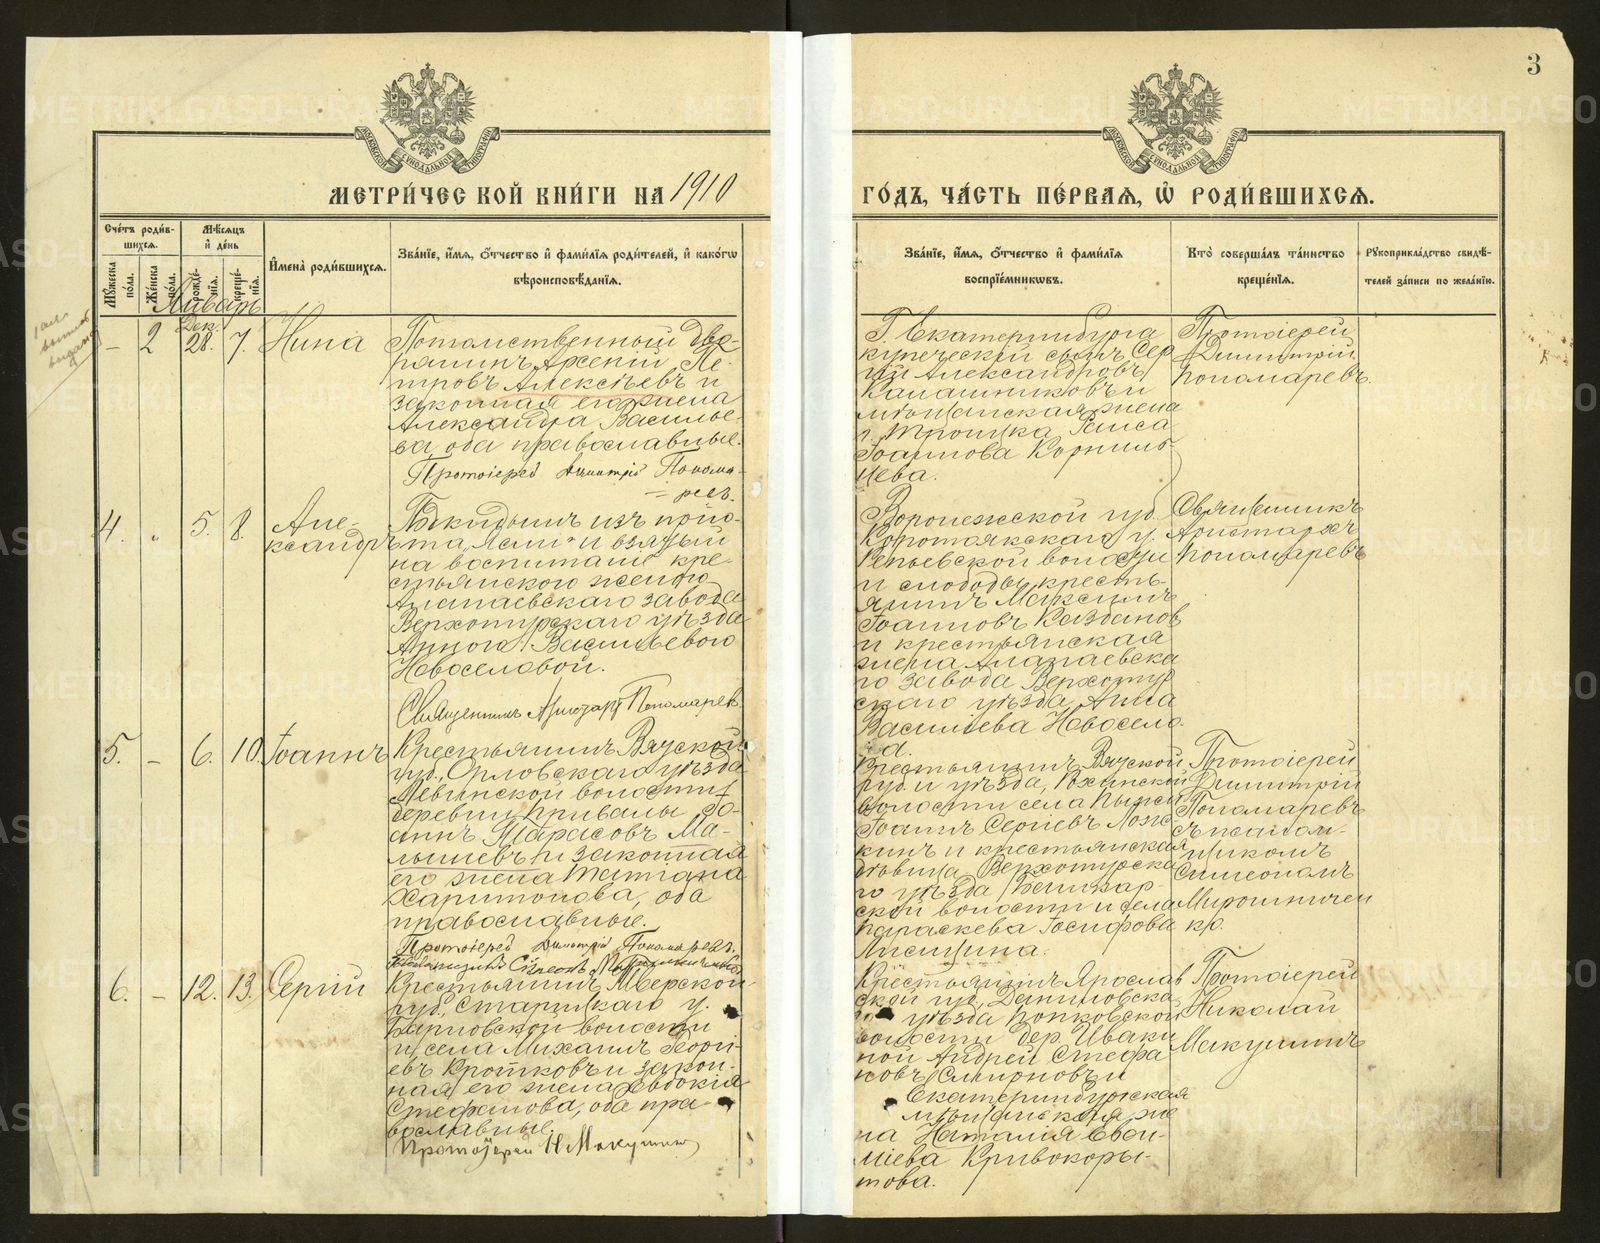 3
МЕТРИ́ЧЕСКОЙ КНИ́ГИ НА 1910 ГО́ДЪ, ЧА́СТЬ ПЕ́РВАЯ, Ѡ РОДИ́ВШИХСЯ.
Счётъ роди́вшихся.
Мѣсяцъ и день
Имена роди́вшихся.
Зва́ніе, и́мя, о́тчество и фами́лія роди́телей, и како́гω вѣроисповѣ́данія.
Зва́ніе, и́мя, о́тчество и фами́лія воспріе́мникωвъ.
Кто̀ соверша́лъ та́инство креще́нія.
Рукоприкла́дство свидѣ́телей за́писи по жела́нію.
Му́жеска по́ла.
Же́нска по́ла.
рожде́нія.
креще́нія.
Январь
Дек.
– 2 28. 7. Нина
Потомственный дво-
рянинъ Арсеній Пе-
тровъ Алексѣевъ и
законная его жена
Александра Василье-
ва, оба православные.
Протоіерей Димитрій Понома-
рев.
Г. Екатеринбурга
купеческій сынъ Сер
гій Александровъ
Калашниковъ и
мѣщанская жена
г. Троицка Раиса
Іоаннова Корниль-
цева.
Протоіерей
Димитрій
Пономаревъ.
4. „ 5. 8. Але-
ксандръ
Подкидышъ изъ прію-
та „Ясли“ и взятый
на воспитаніе кре-
стьянскою женою
Алапаевскаго завода
Верхотурскаго уѣзда
Анною Васильевою
Новоселовой.
Священникъ Аристархъ Пономарев.
Воронежской губ.
Коротоякскаго у.
Репьевской волости
и слободы кресть-
янинъ Максимъ
Іоанновъ
и крестьянская
жена Алапаевска
го завода Верхотур
скаго уѣзда Анна
Васильева Новосело-
ва.
Священникъ
Аристархъ
Пономаревъ
5. – 6. 10. Іоаннъ
Крестьянинъ Вятской
губ., Орловскаго уѣзда
Левинской волости
деревни Привалы Іо-
аннъ Тарасовъ Ма-
лышевъ и законная
его жена Татіана
Харитонова, оба
православные.
Протоіерей Димитрій Пономарев.
Крестьянинъ Вятской
губ. и уѣзда,
волости села
Іоаннъ Сергіевъ Лож-
кинъ и крестьянская
дѣвица Верхотурска
го уѣзда
ской волости и села
Параскева Іосифова
Лисицина.
Протоіерей
Димитрій
Пономаревъ
съ псалом-
щикомъ
Симеономъ
Мирошничен
ко.
6. – 12. 13. Сергій
Крестьянинъ Тверской
губ., Старицкаго у.
волости
и села Михаилъ Георгі-
евъ Кротковъ и закон-
ная его жена Евдокія
Стефанова, оба пра-
вославные.
Протоіерей Н Макушин
Крестьянинъ Ярослав
ской губ. Даниловска
го уѣзда Попковской
волости дер. Иваки
ной Андрей Стефа
новъ Смирновъ и
Екатеринбургская
мѣщанская же
на Наталія Евѳи-
міева Кривокоры-
това.
Протоіерей
Николай
Макушинъ